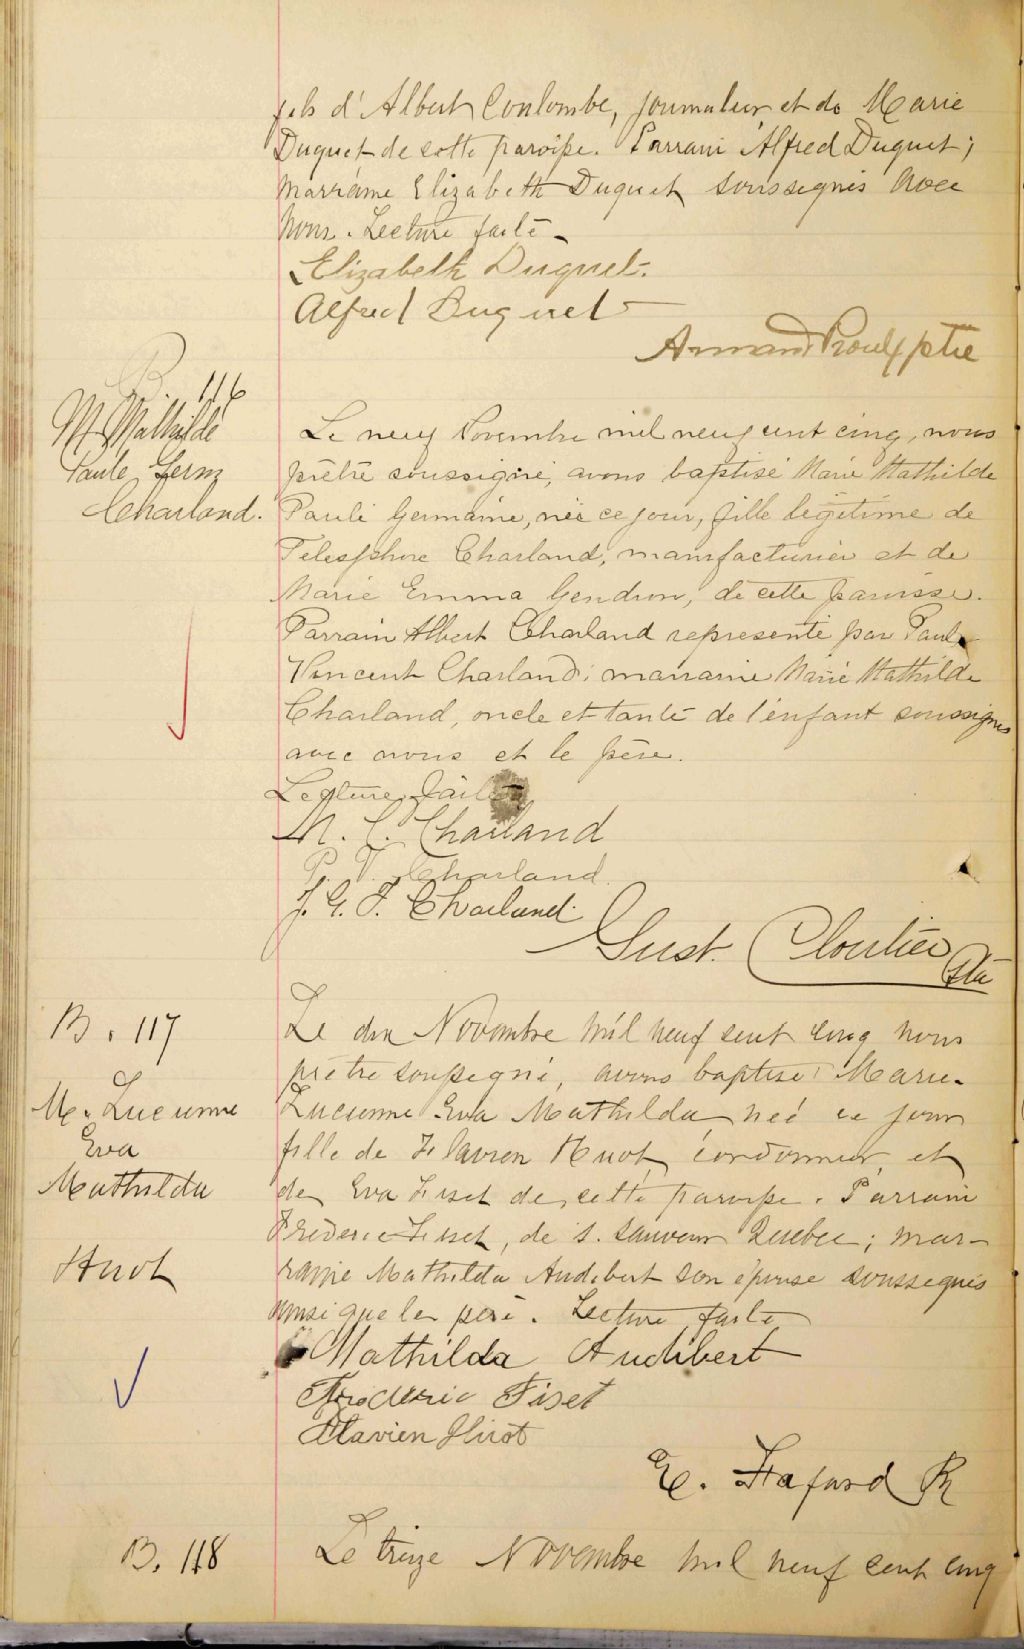 fils d'Albert Coulombe, journalier et de Marie
Duquet de cette paroisse. Parrain Alfred Duquet;
marraine Elizabeth Duquet soussignés avec
nous. Lecture faite.
Elizabeth Duquet.
Alfred Duquet
Armand Proulx ptre
B 116
M. Mathilde
Paule Germ
Charland.
Le neuf Novembre mil neuf cent cinq, nous
prêtre soussigné, avons baptisé Marie Mathilde
Paule Germaine, née ce jour, fille légitime de
Télesphore Charland, manufacturier et de
Marie Emma Gendron, de cette paroisse.
Parrain Albert Charland représenté par Paul
Vincent Charland; marraine Marie Mathilde
Charland, oncle et tante de l'enfant soussignés
avec nous et le père.
Lecture faite
M. C. Charland
P. V. Charland
J. G. T. Charland
Gust. Cloutier Ptr
B. 117
M. Lucienne
Eva
Mathilda
Huot
Le dix Novembre mil neuf cent cinq nous
prêtre soussigné, avons baptisé Marie-
Lucienne Eva Mathilda née ce jour
fille de Flavien Huot, cordonnier, et
de Eva Fiset de cette paroisse. Parrain
Fréderic Fiset, de S. Sauveur Québec; mar-
raine Mathilda Audibert son épouse soussignés
ainsi que le père. Lecture faite
Mathilda Audibert
Frederic Fiset
Flavien Huot
E. Fafard
B. 118
Le treize Novembre mil neuf cent cinq